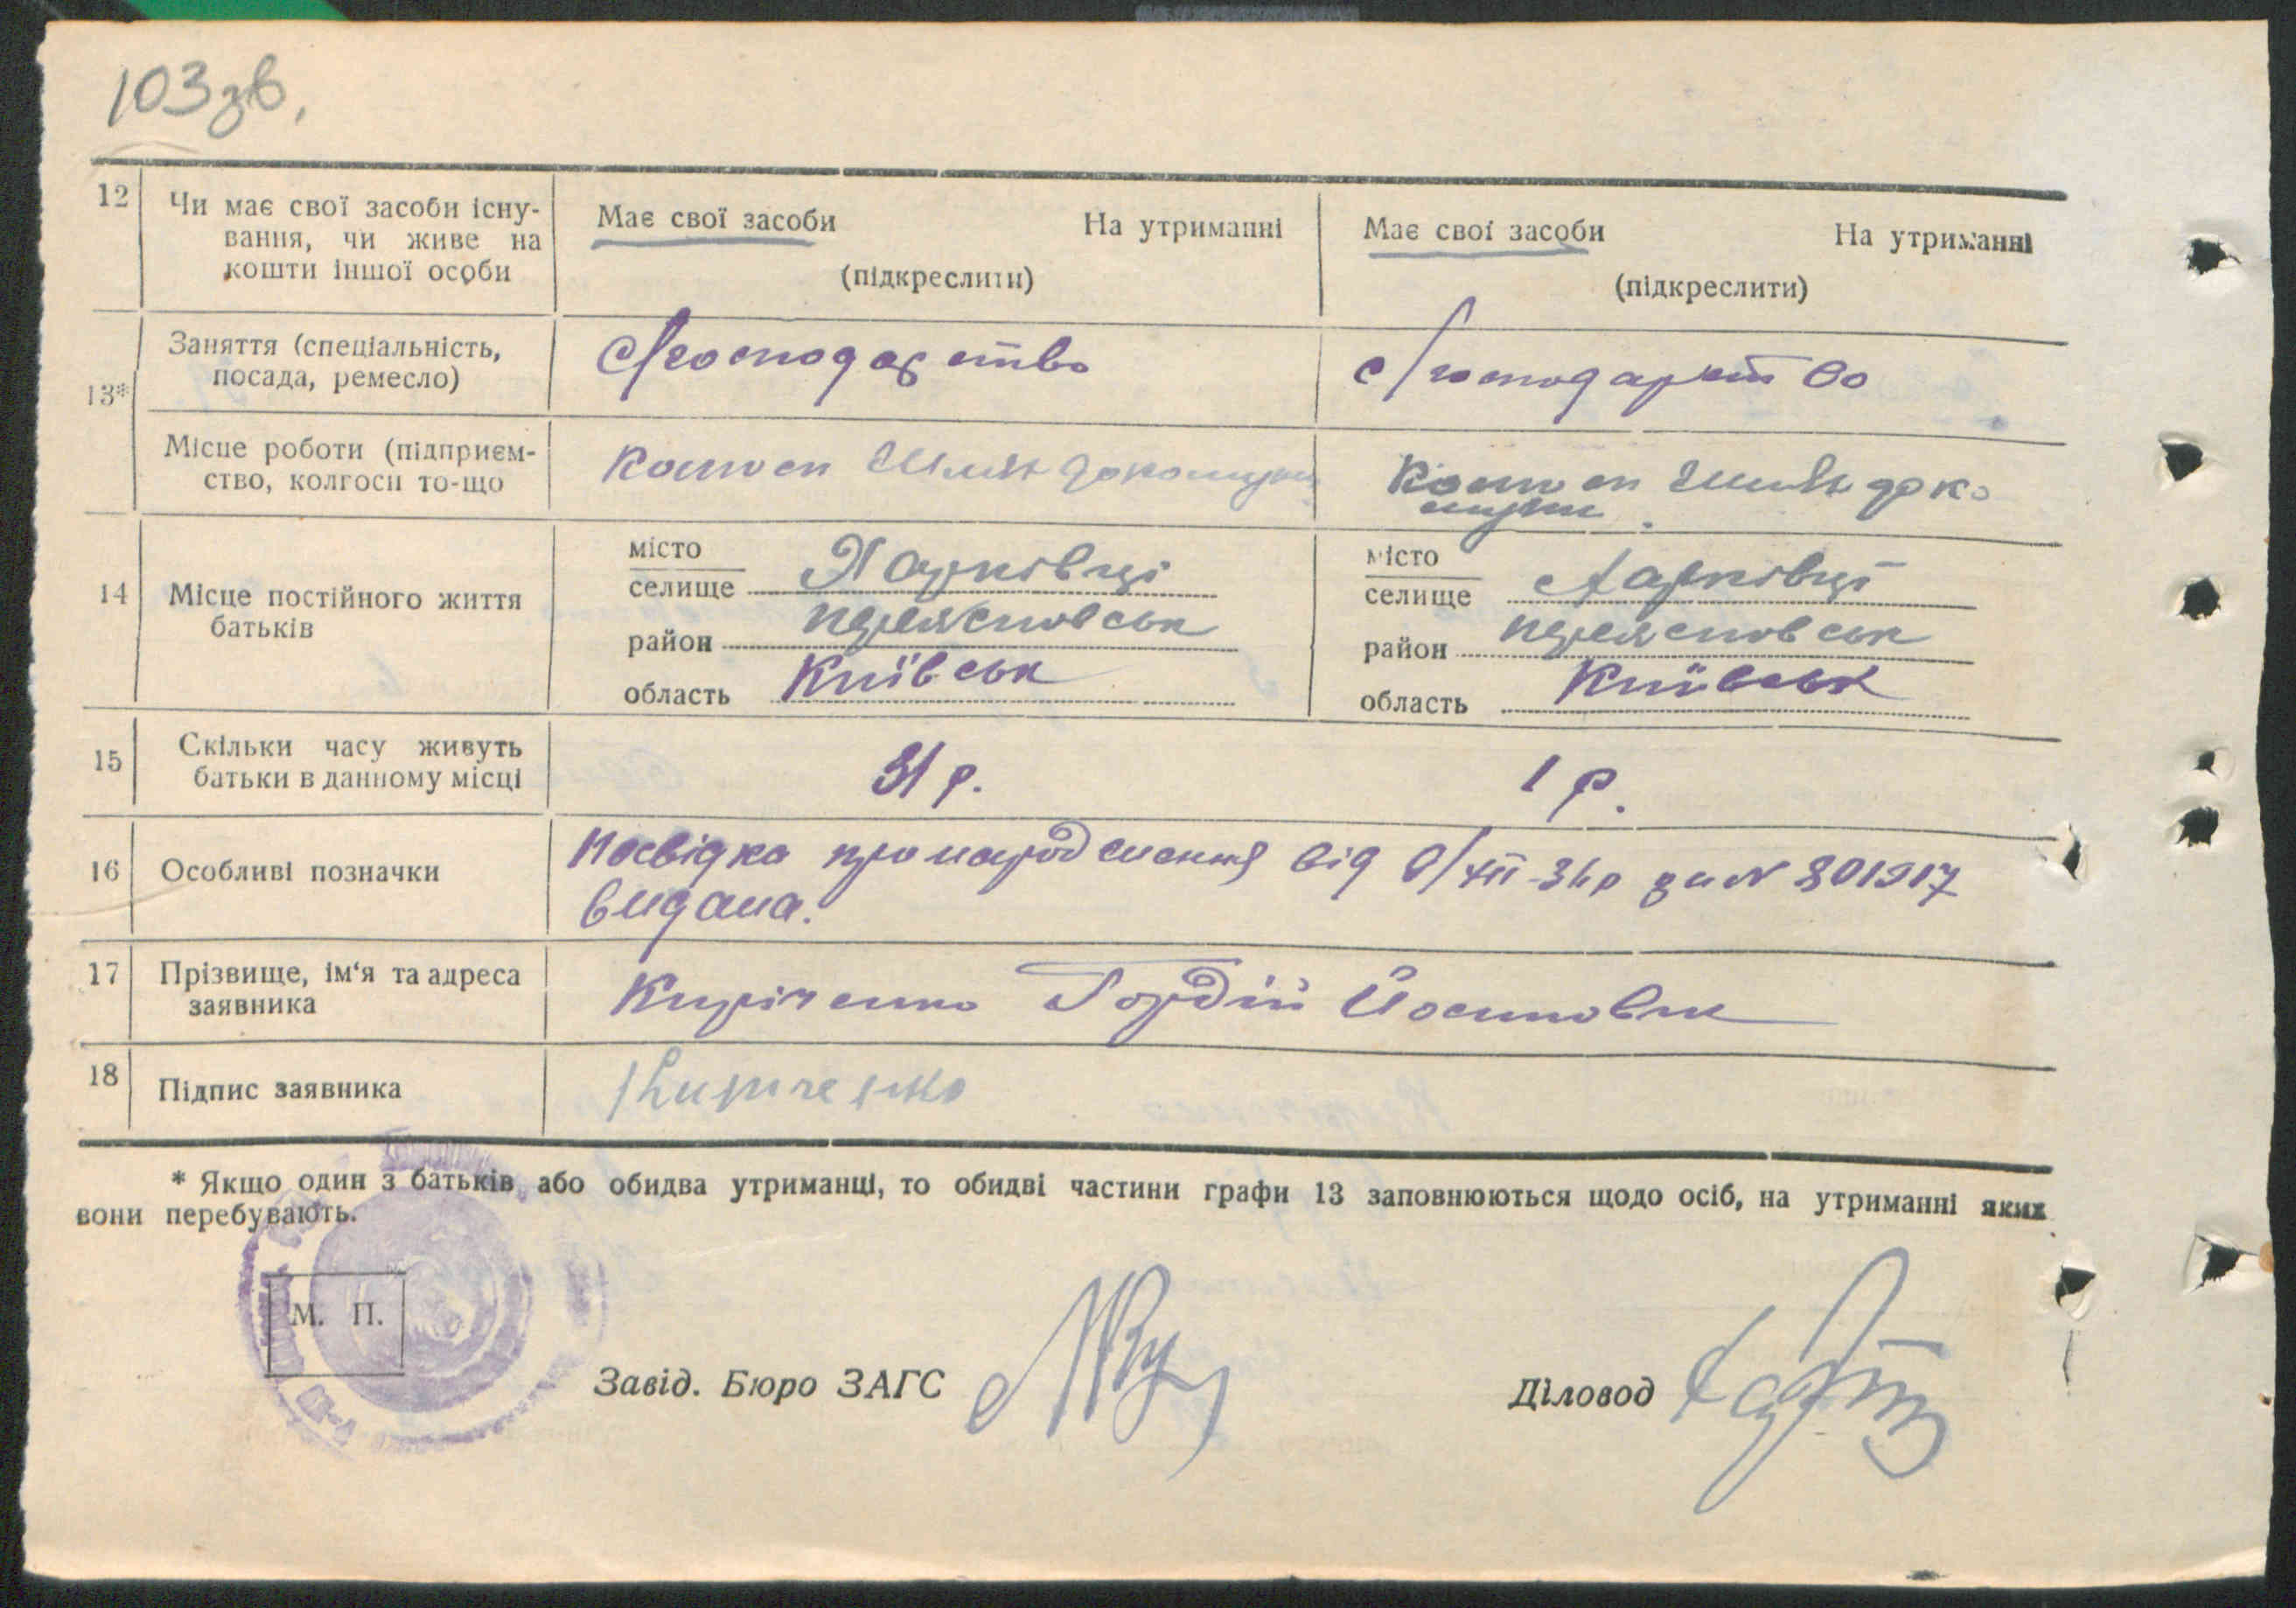 103 зв.
12 Чи має свої засоби існу-
вання, чи живе на
кошти іншої особи
Має свої засоби На утриманні
(підкреслити)
Має свої засоби На утриманні
(підкреслити)
13*
Заняття (спеціальність,
посада, ремесло)
с/господарство
с/господарство
Місце роботи (підприєм-
ство, колгосп то-що
Колгосп Шлях до комуни
Колгосп Шлях до ко
муни.
14 Місце постійного життя
батьків
місто
селище Харківці
район переяславськ
область Київськ
місто
селище Харківці
район переяславськ
область Київськ
15 Скільки часу живуть
батьки в данному місці
31 р.
1 р.
16 Особливі позначки
Посвідка про народження від /XII-34р за № 801917
видана.
17 Прізвище, ім'я та адреса
заявника
Киріченко Гордій Йосипович
18 Підпис заявника
Кириченко
* Якщо один з батьків або обидва утриманці, то обидві частини графи 13 заповнюються щодо осіб, на утриманні яких
вони перебувають.
М. П.
Завід. Бюро ЗАГС
Діловод